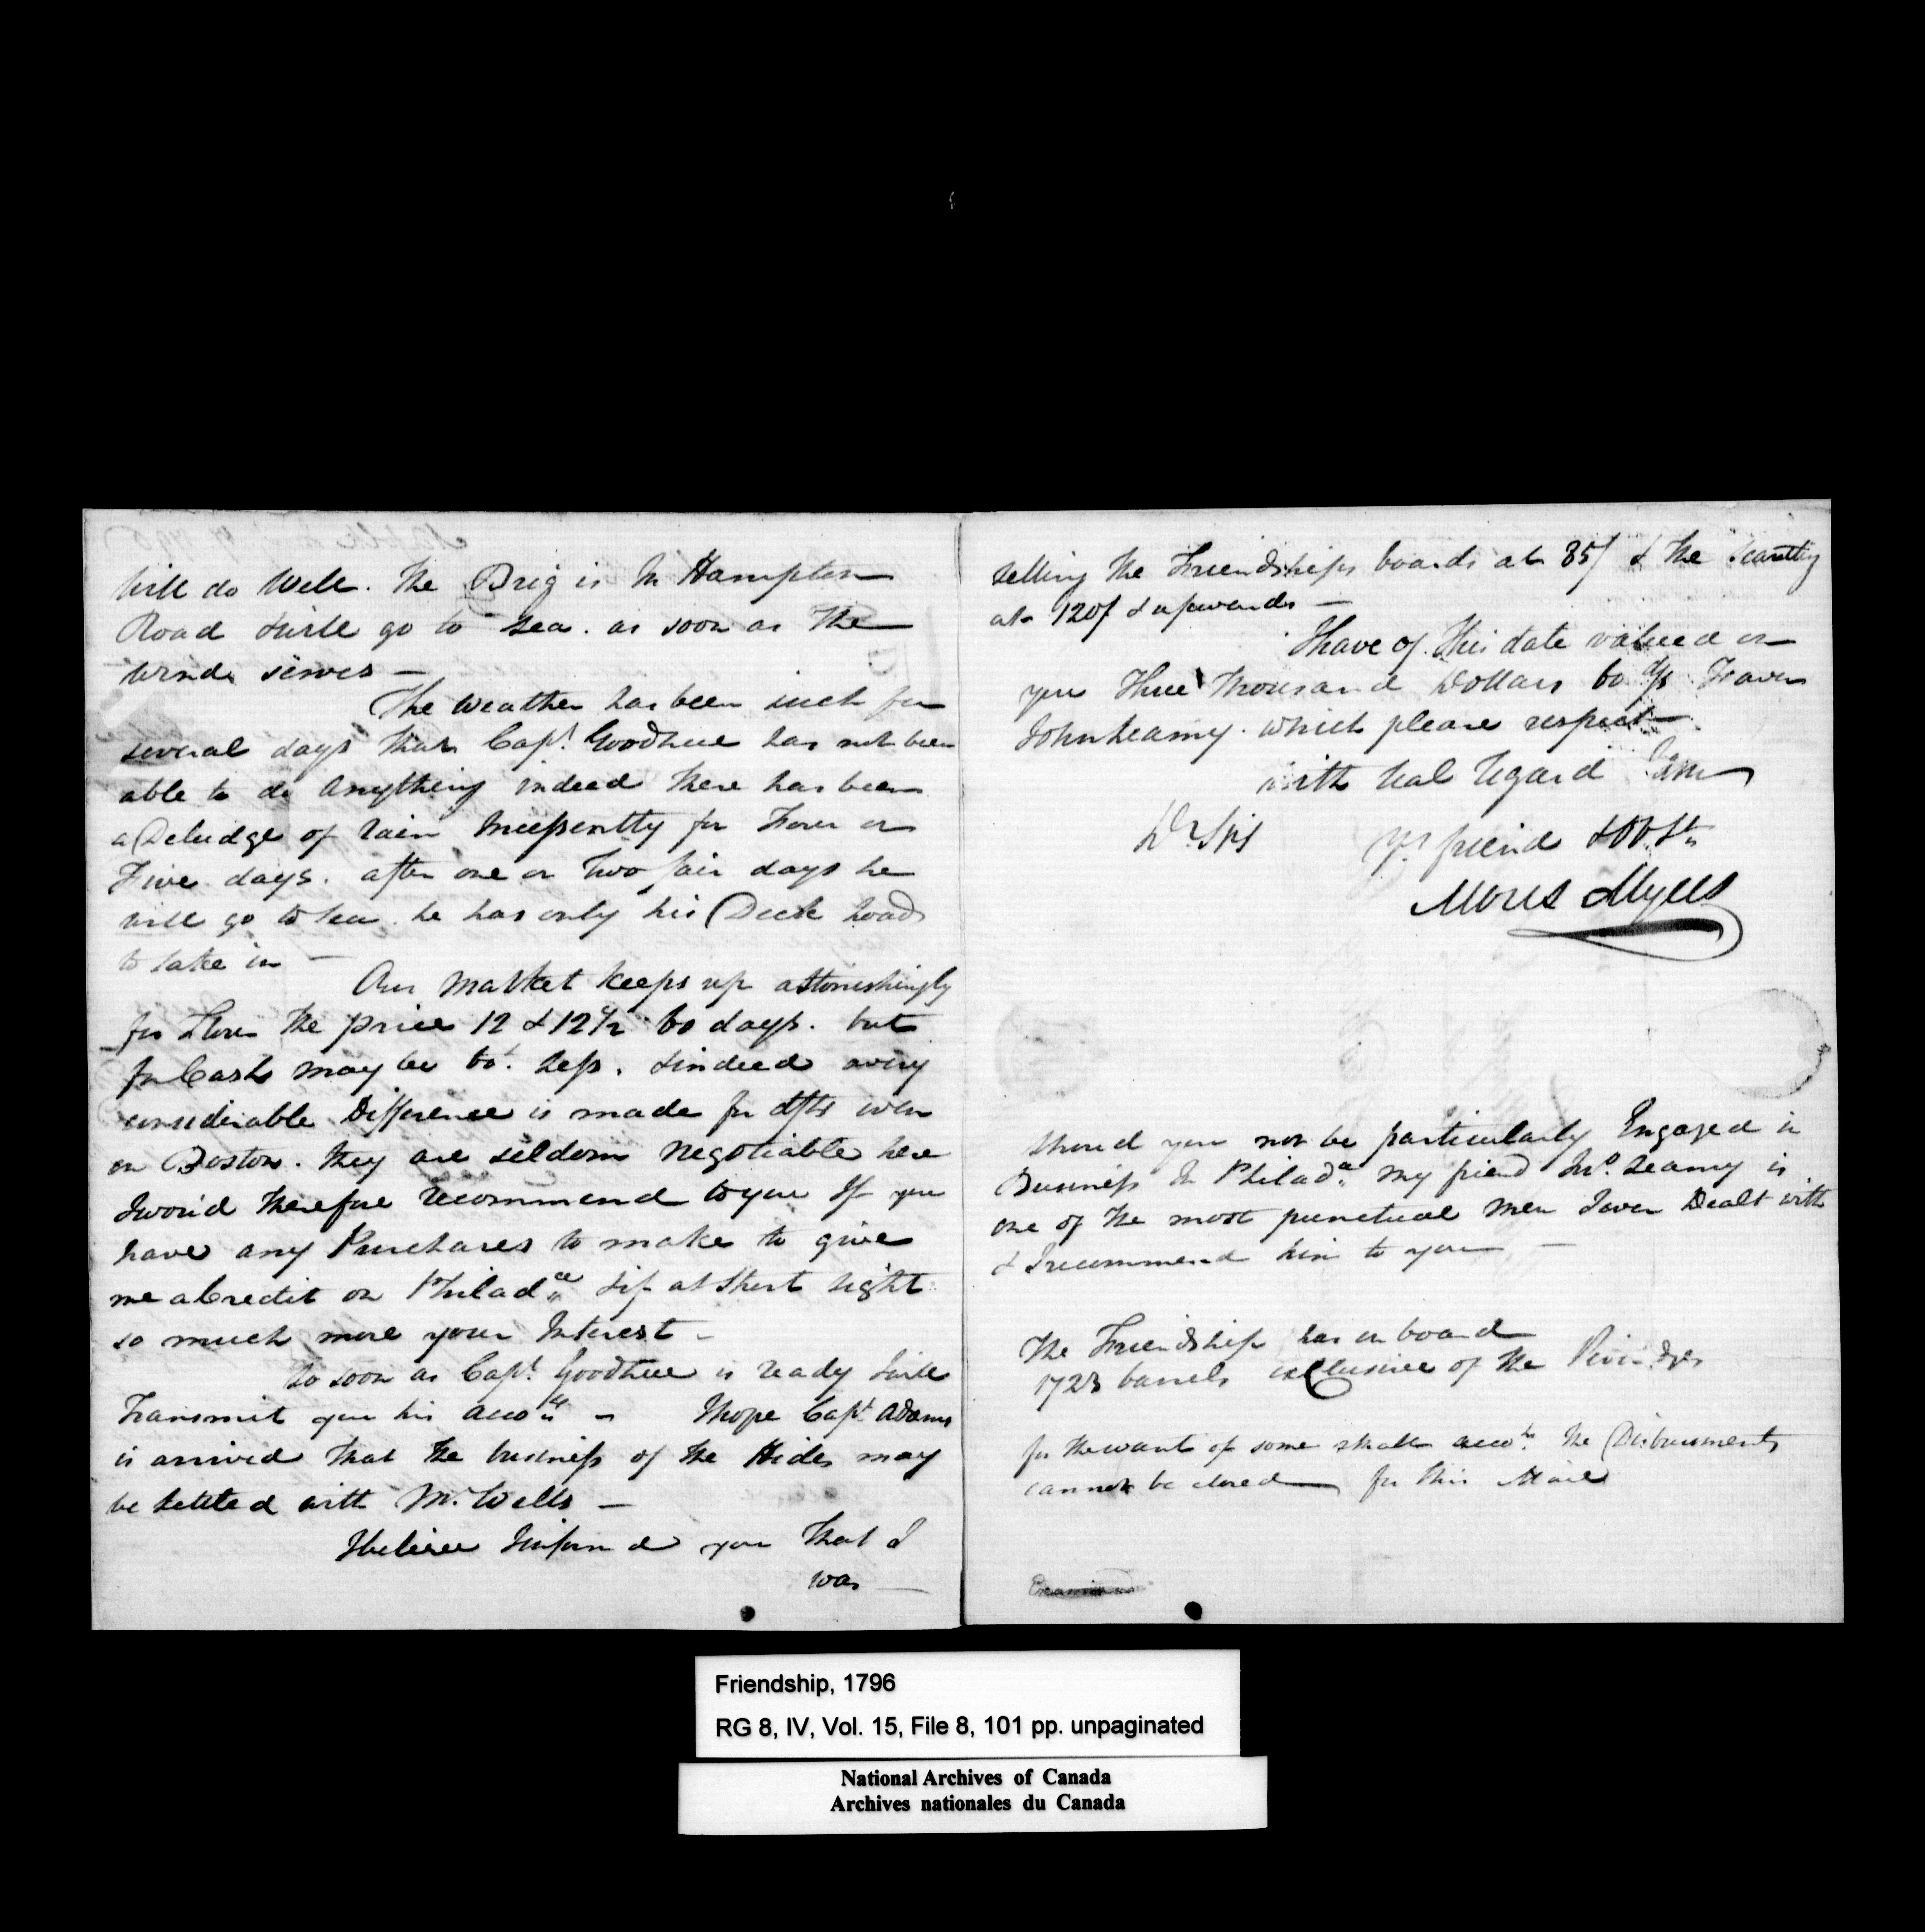 will do well. The Brig is In Hampton
Road & will go to Sea. as soon as the
wind serves —
The weather has been such for
several days that Capt. Goodhue has not been
able to do anything indeed there has been
a Deludge of rain Incessently for Four or
Five days. after one or two fair days he
will go to sea he has only his Deck load
to take in —
Our Market keeps up astonishingly
for Flour the price 12 & 12 1/2 60 days. but
for Cash may be bot. less. & indeed a very
considerable Difference is made for dfts even
on Boston. they are seldom negotiable here
I wou'd therefore recommend to you If you
have any Purchases to make to give
me a Credit on Philada & if at Short sight
so much more your Interest —
So soon as Capt. Goodhue is ready I will
Transmit you his accots — I hope Capt. Adams
is arrived that the business of the Hides may
be settled with Mr. Wells —
I believe I inform'd you that I
was —
selling the Friendships boards at 85/ & the Scantling
at 120/ & upwards —
I have of this date valued on
you Three thousand Dollars 60 d/s Favor
John Leamy. which please respect —
with real regard I am
Dr Sir
Yr. friend & Ob. St.
Moses Myers
Shou'd you not be particularly Engaged in
Business In Philada. my friend Jno. Leamy is
one of the most punctual men I ever Dealt with
& I recommend him to you —
The Friendship has on board
1723 barrels exclusive of the
for the want of some small accots. the Disbursments
cannot be closed for this Mail
Examined
Friendship, 1796
RG 8, IV, Vol. 15, File 8, 101 pp. unpaginated
National Archives of Canada
Archives nationales du Canada